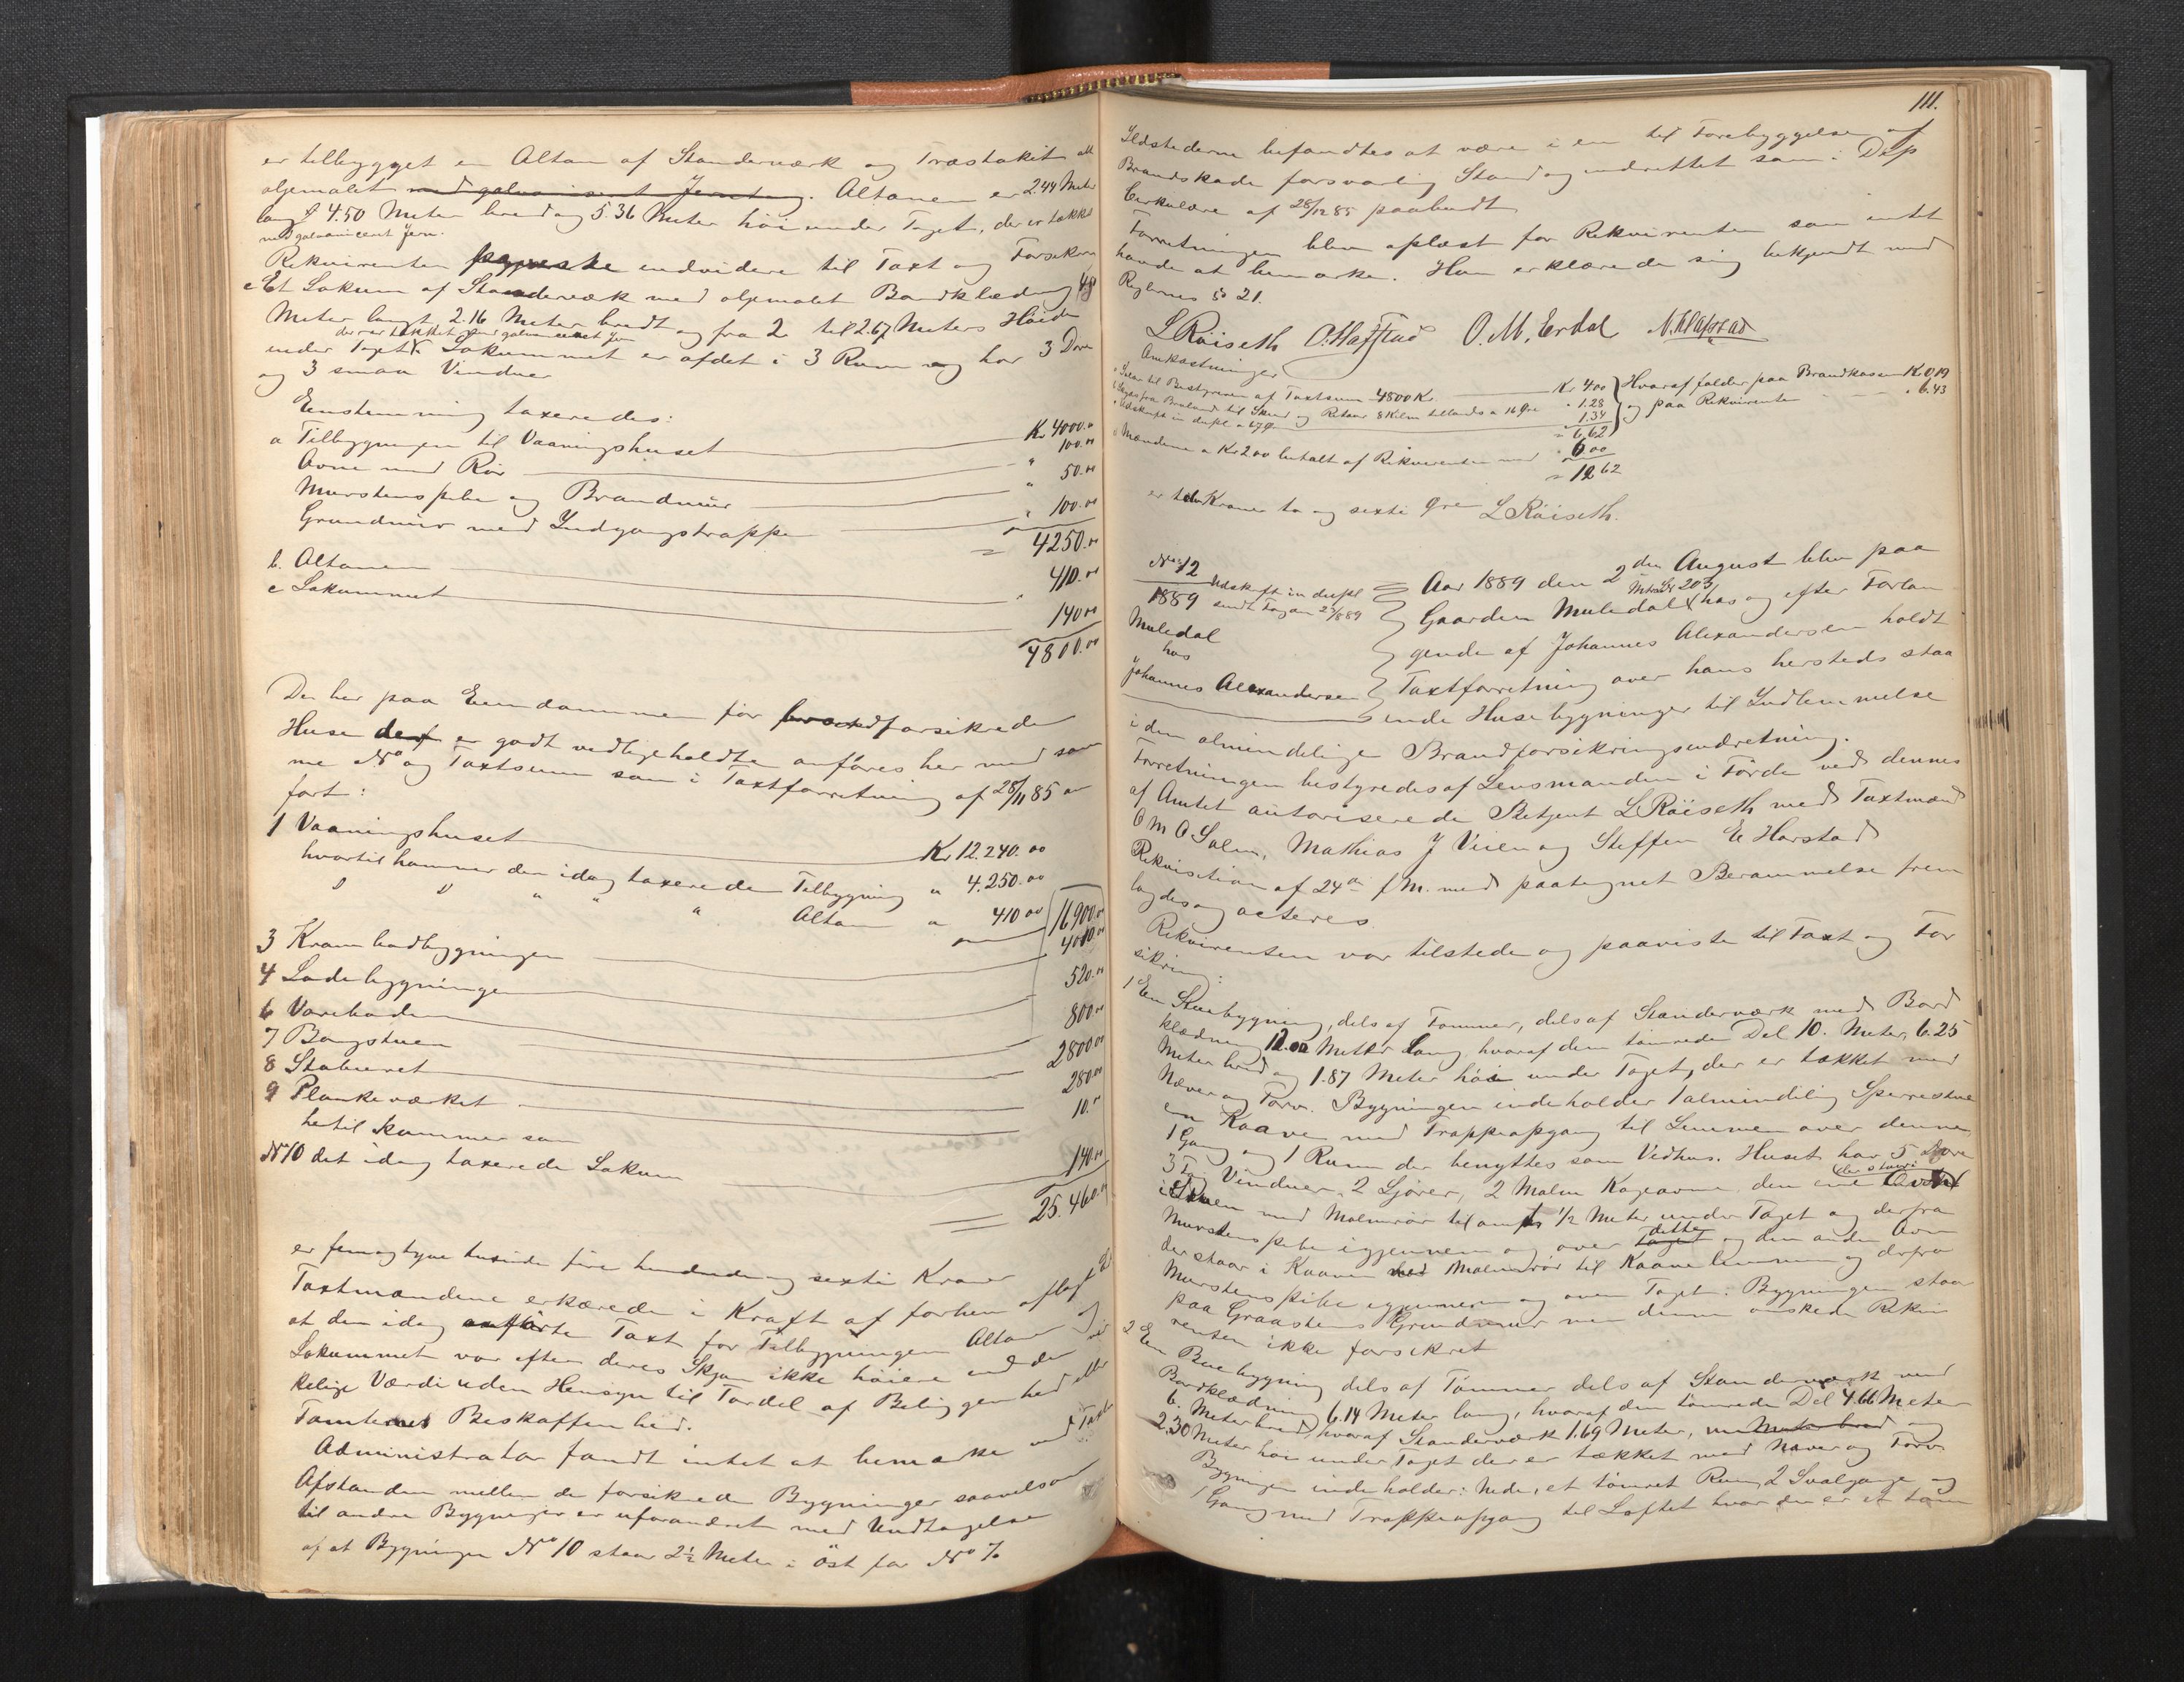 er tilbygget en Altan af Standerværk og Træstakit alt
oljemalet med galvaniseret Jerntag. Altanen er 2.44 Meter
lang 4.50 Meter bred og 5.36 Meter høi under Taget, der er tækket
med galvaniceret Jern.
Rekvirenten endvidere til Taxt og Forsikring
c Et Lokum af Standeværk med oljemalet Bordklædning
Meter langt, 2.16 Meter bredt og fra 2 til 2.67 Meters Høide
der er tækket med galvaniceret Jern
under Taget. Lokummet er afdelt i 3 Rum og har 3 Døre
og 3 smaa Vinduer
Eenstemmig taxeredes:
a Tilbygningen til Vaaningshuset Kr 4000.00
Ovne med Rør " 100.00
Murstenspibe og Brandmur " 50.00
Grundmur med Indgangstrappe " 100.00
= 4250.00
b. Altanen 410.00
c Lokummet 140.00
4800.00
De her paa Eiendommen før forsikrede
Huse er godt vedligeholdte anføres her med sam
me No og Taxtsum som i Taxtforretning af 28/11 85 an
ført:
1 Vaaningshuset Kr 12.240.00
hvortil kommer den idag taxerede Tilbygning " 4.250.00
" " " " " Altan " 410.00 16900.00
3 Krambodbygningen 4010.00
4 Ladebygningen 520.00
6 Vareboden 800.00
7 Borgstuen 2800.00
8 Stabueret 280.00
9 Plankeværket 10.00
hertil kommer som
No 10 det idag taxerede Lokum 140.00
= 25.460.00
er femogtyve tusinde fire hundrede og sexti Kroner
Taxtmændene erkærede i Kraft af forhen aflagt Ed
at den idag anførte Taxt for Tilbygningen Altan og
Lokummet var efter deres Skjøn ikke høiere end den vir
kelige Værdi uden Hensyn til Fordel af Beliggenhed eller
Tomternes Beskaffenhed.
Administrator fandt intet at bemærke ved Taxten
Afstanden mellem de forsikrede Bygninger saavelsom
til andre Bygninger er uforandret med Undtagelse
af at Bygningen No 10 staar 2½ Meter i Øst for No 7.
111.
Ildstederne befandtes at være i en til Forebyggelse af
Brandskade forsvarlig Stand og indrettet som i Dep
Cirkulære af 28/12 85 paabudt
Forretningen blev oplæst for Rekvirenten som intet
havde at bemærke. Han erklærede sig bekjendt med
Reglernes § 21.
L Röiseth O. Hafstad O. M. Erdal N. Klafstad
Omkostninger
a Salær til Bestyreren af Taxtsum 4800 Kr Kr 4.00 Hvoraf falder paa Brandkassen Kr 0.19
b Skyds fra Bruland til Skeid og Retour 8 Kilm tillands a 16 Øre " 1.28 og paa Rekvirenten " 6.43
c Udskrift in dupl a 67 Ø 1.34
= 6.62
d Mændene a Kr 2.00 betalt af Rekvirenten med " 6.00
= 12.62
er tolv Kroner to og sexti Øre L Röiseth.
No 12
1889 Udskrift in dupl
sendt Fogden 2/8 89
Muledal
hos
Johannes Alexandersen
Aar 1889 den 2den August blev paa
Matr. L. 203
Gaarden Muledal hos og efter Forlan
gende af Johannes Alexandersen holdt
Taxtforretning over hans hersteds staa
ende Husebygninger til Indlemmelse
i den almindelige Brandforsikringsindretning.
Forretningen bestyredes af Lensmanden i Førde ved dennes
af Amtet autoriserede Betjent L Röiseth med Taxtmænd
O M O Salen, Mathias J Vieen og Steffen E Harstad
Rekvisition af 24de f M. med paategnet Berammelse frem
lagdes og acteres
Rekvirenten var tilstede og paaviste til Taxt og For
sikring:
1 En Stuebygning, dels af Tømmer, dels af Standerværk med Bord
klædning 12.00 Meter lang, hvoraf den tømrede Del 10. Meter, 6.25
Meter bred og 1.87 Meter høi under Taget, der er tækket med
Næver og Torv. Bygningen indeholder 1 almindelig Sperrestue
en Kaave med Trappeopgang til Lemmen over denne,
1 Gang og 1 Rum der benyttes som Vedhus. Huset har 5 Døre
3 Fag Vinduer, 2 Ljorer, 2 Malm Kogeovne, den ene der staar
i Stuen med Malmrør til omtr ½ Meter under Taget og derfra
Murstenspibe igjennem og over dette og den anden Ovn
der staar i Kaaven med Malmrør til Kaavelemmen og derfra
Murstenspibe igjennem og over Taget. Bygningen staar
paa Graastens Grundmur men denne ønskede Rekvi
renten ikke forsikret
2 En Buebygning dels af Tømmer dels af Standerværk med
Bordklædning 6.14 Meter lang, hvoraf den tømrede Del 4.66 Meter
6. Meter bred, hvoraf Standerværk 1.69 Meter, Meter bred og
2.30 Meter høi under Taget der er tækket med Næver og Torv
Bygningen indeholder: Nede, et tømret Rum, 2 Svalgange og
1 Gang med Trappeopgang til Loftet hvor der er et tøm